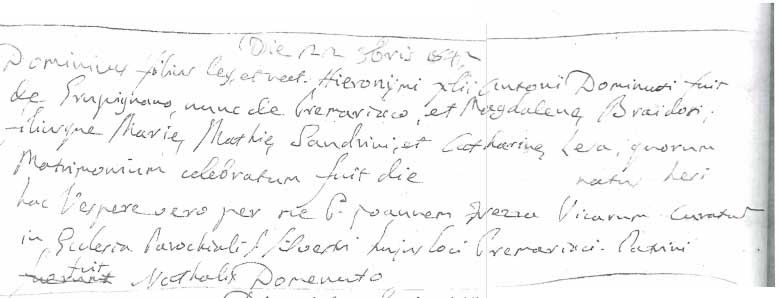 Die 22 9bris
Dominicus filius leg, et nat. Hieronÿmi filii Antoni Dominuti fuit
de Grupignano, nunc de Premariaco, et Magdalenę Braidoti,
filiusque Marię, Mathię Sandrini, et Catharinę quorum
Matrimonium celebratum fuit die natus heri
hac Vespere vero per me P. Joannem Vicarium Curatum
in Ecclesia Parochiali S. Silvestri hujus loci Premariaci. Patrini
fuit Nathalis Domenuto